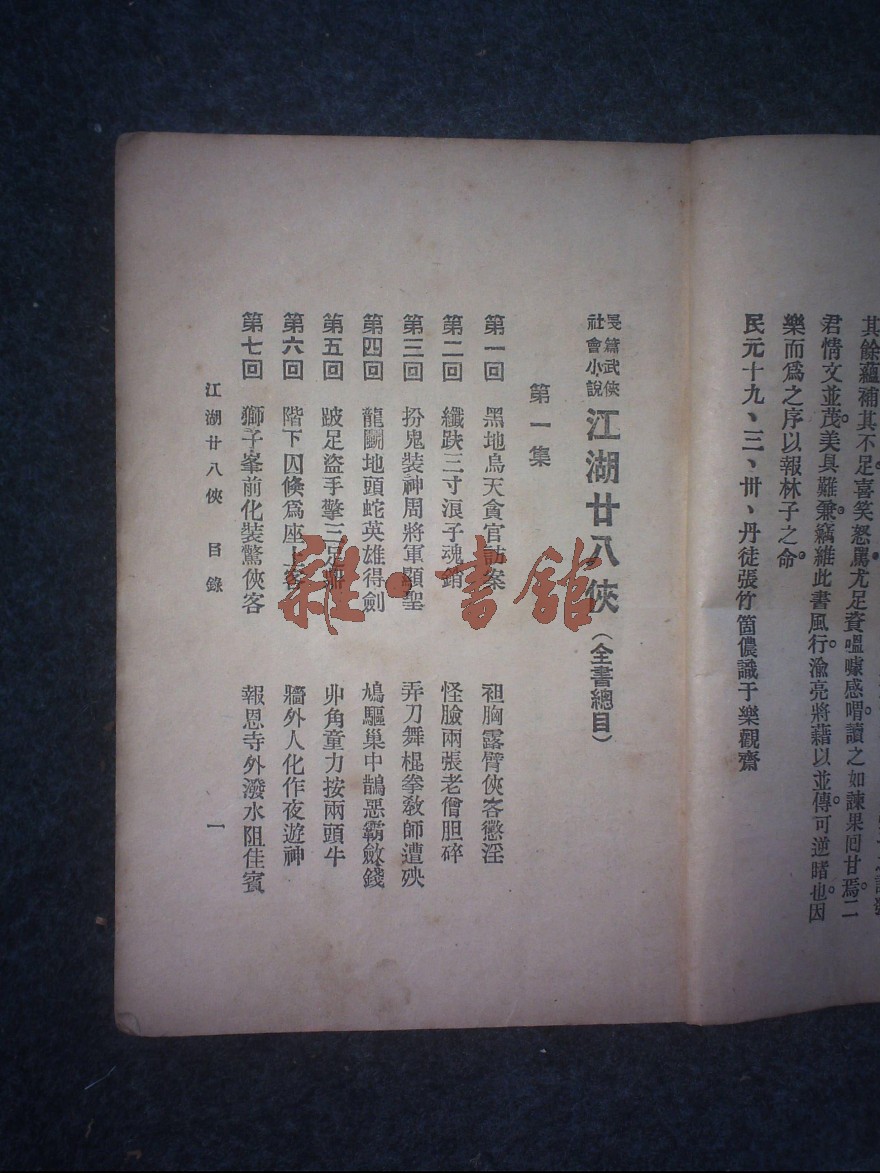 其餘蘊補其不足喜笑怒罵尤足資嗢噱感喟讀之如諫果回甘焉二
君情文並茂美具難兼竊維此書風行瀹亮將藉以並傳可逆睹也因
樂而爲之序以報林子之命
民元十九、三、卅、丹徒張竹箇儂識于樂觀齋
長篇武俠
社會小說
江湖廿八俠(全書總目)
第一集
第一回 黑地烏天貪官訪案 袒胸露臂俠客懲淫
第二回 纖趺三寸浪子魂銷 怪臉兩張老僧胆碎
第三回 扮鬼裝神周將軍顯聖 弄刀舞棍拳敎師遭殃
第四回 龍鬭地頭蛇英雄得劍 鳩驅巢中鵲惡霸斂錢
第五回 跛足盜手擎三足鼎 丱角童力按兩頭牛
第六回 階下囚倏爲座上客 牆外人化作夜遊神
第七回 獅子峯前化裝驚俠客 報恩寺外潑水阻佳賓
江湖廿八俠 目錄
一
雜·書館